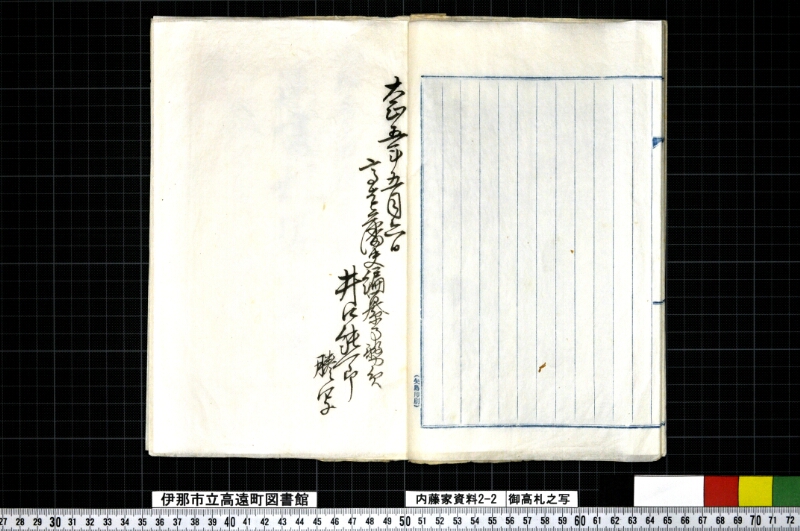 大正五年五月六日
高遠藩史編纂事務所
井口熊一郎
謄写
伊那市立高遠町図書館
内藤家資料2-2
御高札之写
27 28 29 30 31 32 33 34 35 36 37 38 39 40 41 42 43 44 45 46 47 48 49 50 51 52 53 54 55 56 57 58 59 60 61 62 63 64 65 66 67 68 69 70 71 72